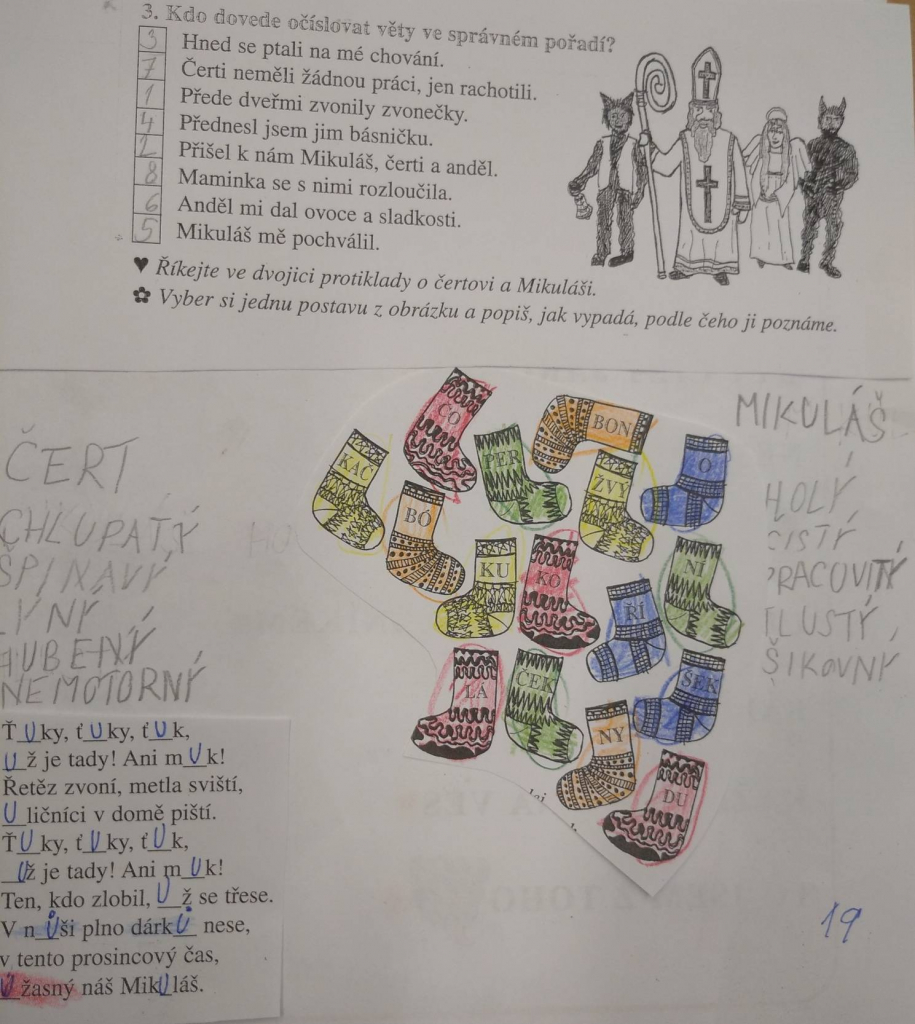 3. Kdo dovede očíslovat věty ve správném pořadí?
3 Hned se ptali na mé chování.
7 Čerti neměli žádnou práci, jen rachotili.
1 Přede dveřmi zvonily zvonečky.
4 Přednesl jsem jim básničku.
2 Přišel k nám Mikuláš, čerti a anděl.
8 Maminka se s nimi rozloučila.
6 Anděl mi dal ovoce a sladkosti.
5 Mikuláš mě pochválil.
♥ Říkejte ve dvojici protiklady o čertovi a Mikuláši.
✿ Vyber si jednu postavu z obrázku a popiš, jak vypadá, podle čeho ji poznáme.
ČERT
CHLUPATÝ
ŠPINAVÝ
LÍNÝ
HUBENÝ
NEMOTORNÝ
ČO
BON
KAČ
PER
ŽVÝ
O
BÓ
KU
KO
NÍ
ŘÍ
LÁ
ČEK
ŠEK
NY
DU
MIKULÁŠ
HOLÝ
ČISTÝ
PRACOVITÝ
TLUSTÝ,
ŠIKOVNÝ
ŤUky, ťUky, ťUk,
Už je tady! Ani mUk!
Řetěz zvoní, metla sviští,
Uličníci v domě piští.
ŤUky, ťUky, ťUk,
Už je tady! Ani mUk!
Ten, kdo zlobil, Už se třese.
V nŮši plno dárkŮ nese,
v tento prosincový čas,
Úžasný náš MikUláš.
19